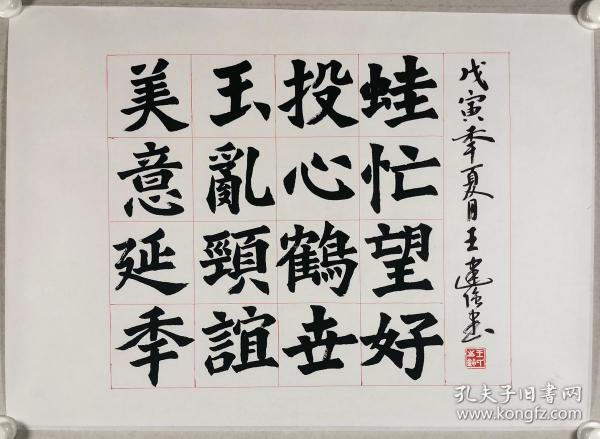 美玉投蛙
意亂心忙
延頸鶴望
秊誼世好
戊寅秊夏日王建
孔夫子旧书网
www.kongfz.com